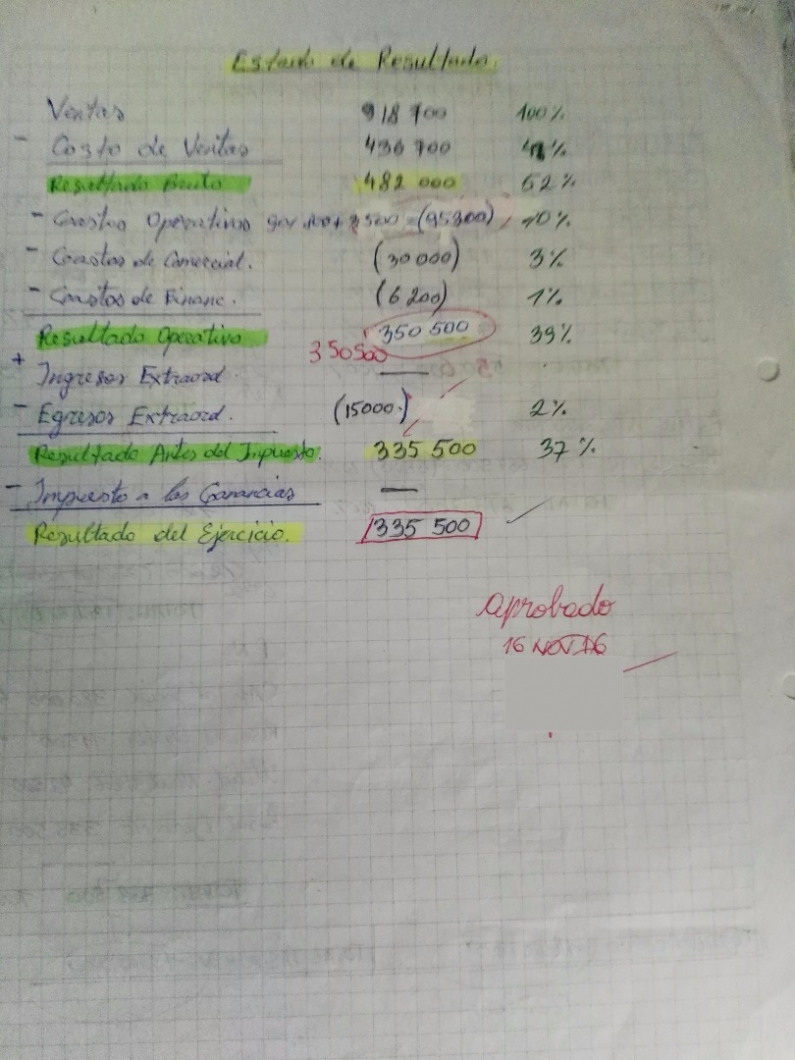 Estado de Resultado.
Ventas 918 700 100%
- Costo de Ventas 436 700 %
Resultado Bruto 482 000 52%
- Gastos Operativos 3500 = (95300) 10%
- Gastos de Comercial. (30 000) 3%
- Gastos de Financ. (6 200) 1%
Resultado Operativo 350 500 39%
350500
+ Ingresos Extraord. —
- Egresos Extraord. (15000.) 2%
Resultado Antes del Impuesto. 335 500 37%
- Impuesto a las Ganancias —
Resultado del Ejercicio. 335 500
Aprobado
16 NOV 16